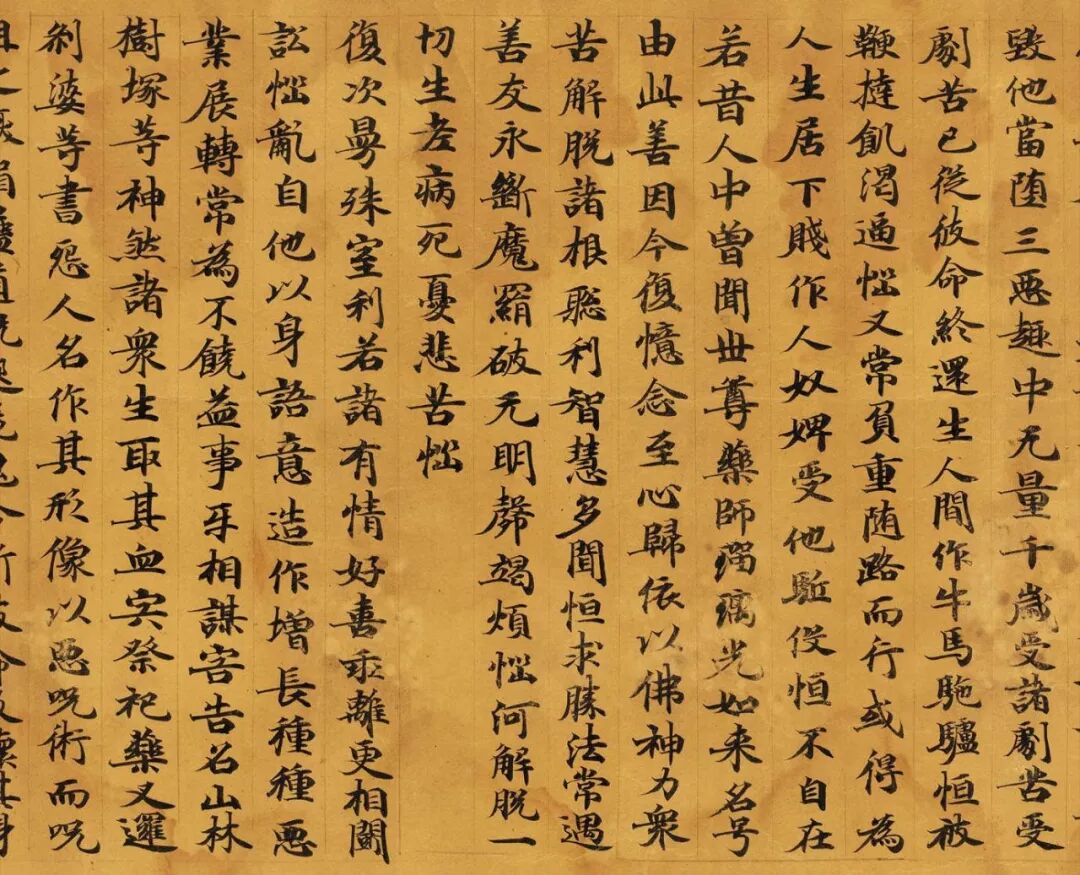 毀他當堕三惡趣中无量千歲受諸劇苦受
劇苦已從彼命終還生人間作牛馬駞驢恒被
鞭撻飢渴逼惱又常負重随路而行或得為
人生居下賤作人奴婢受他駈役恒不自在
若昔人中曾聞世尊藥師瑠璃光如来名号
由此善因今復憶念至心歸依以佛神力衆
苦解脫諸根聡利智慧多聞恒求勝法常遇
善友永斷魔羂破无明㲉竭煩惱河解脫一
切生老病死憂悲苦惱
復次曼殊室利若諸有情好憙乖離更相鬪
訟惱亂自他以身語意造作增長種種惡
業展轉常為不饒益事互相謀害告召山林
樹塚等神煞諸衆生取其血宍祭祀藥叉邏
刹婆等書怨人名作其形像以惡呪術而呪